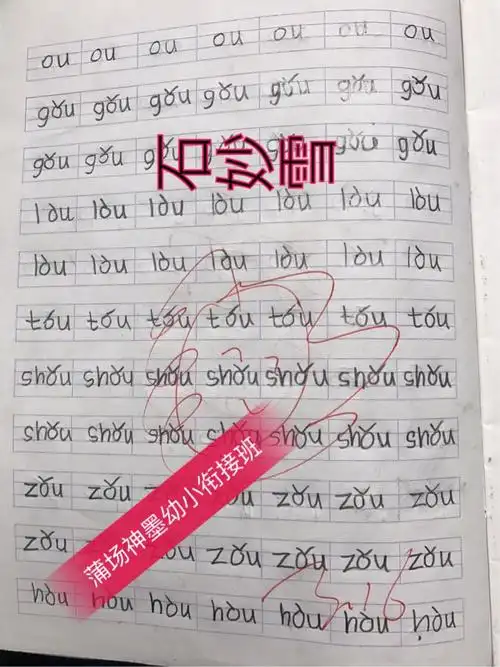 ou ou ou ou ou ou ou
gǒu gǒu gǒu gǒu gǒu gǒu gǒu
gǒu gǒu gǒu gǒu
石妙雪
lòu lòu lòu lòu lòu lòu lòu
lòu lòu lòu lòu lòu lòu lòu
tóu tóu tóu tóu tóu tóu tóu
shǒu shǒu shǒu shǒu shǒu shǒu shǒu
shǒu shǒu shǒu shǒu shǒu shǒu
zǒu zǒu zǒu zǒu zǒu
zǒu zǒu zǒu zǒu zǒu
蒲场神墨幼小衔接班
hòu hòu hòu hòu hòu hòu hòu
3.16